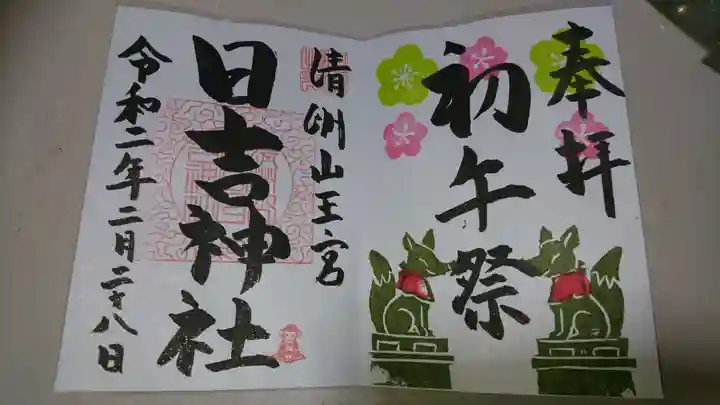 奉拝
初午祭
清明山王宮
日吉神社
令和二年二月二十八日